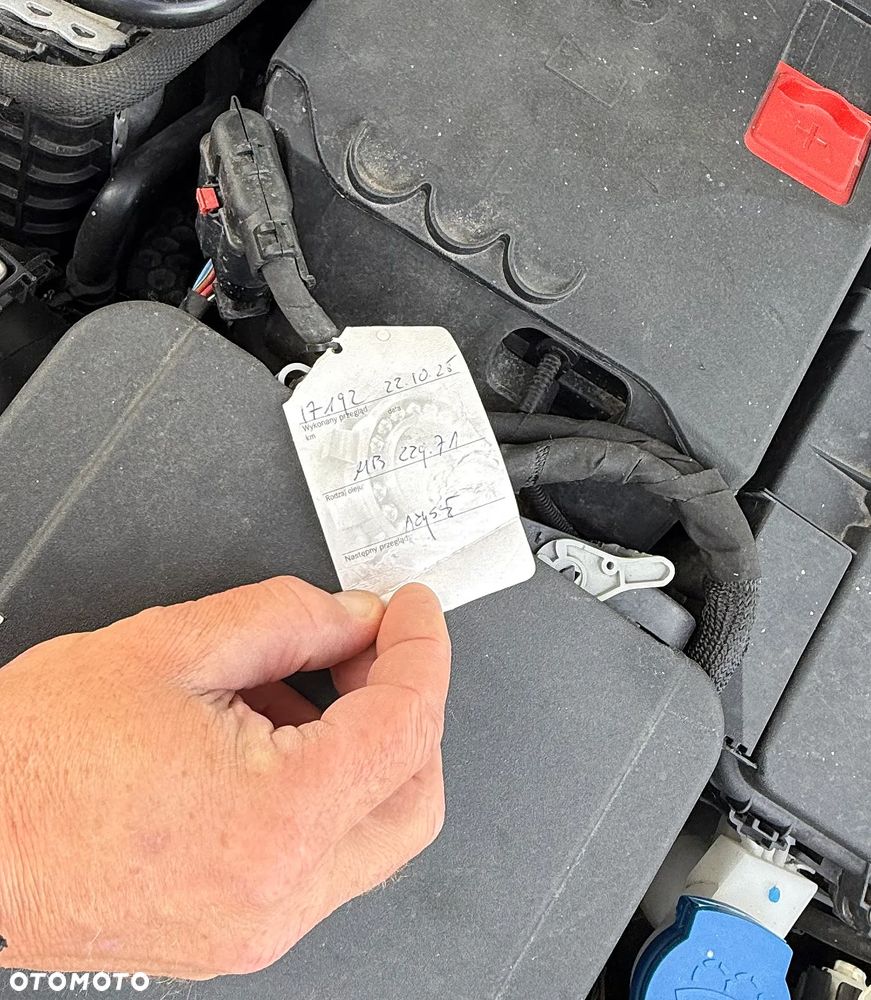 17192 22.10.25
Wykonany przegląd data
km
MB 229.71
Rodzaj oleju
Następny przegląd
OTOMOTO